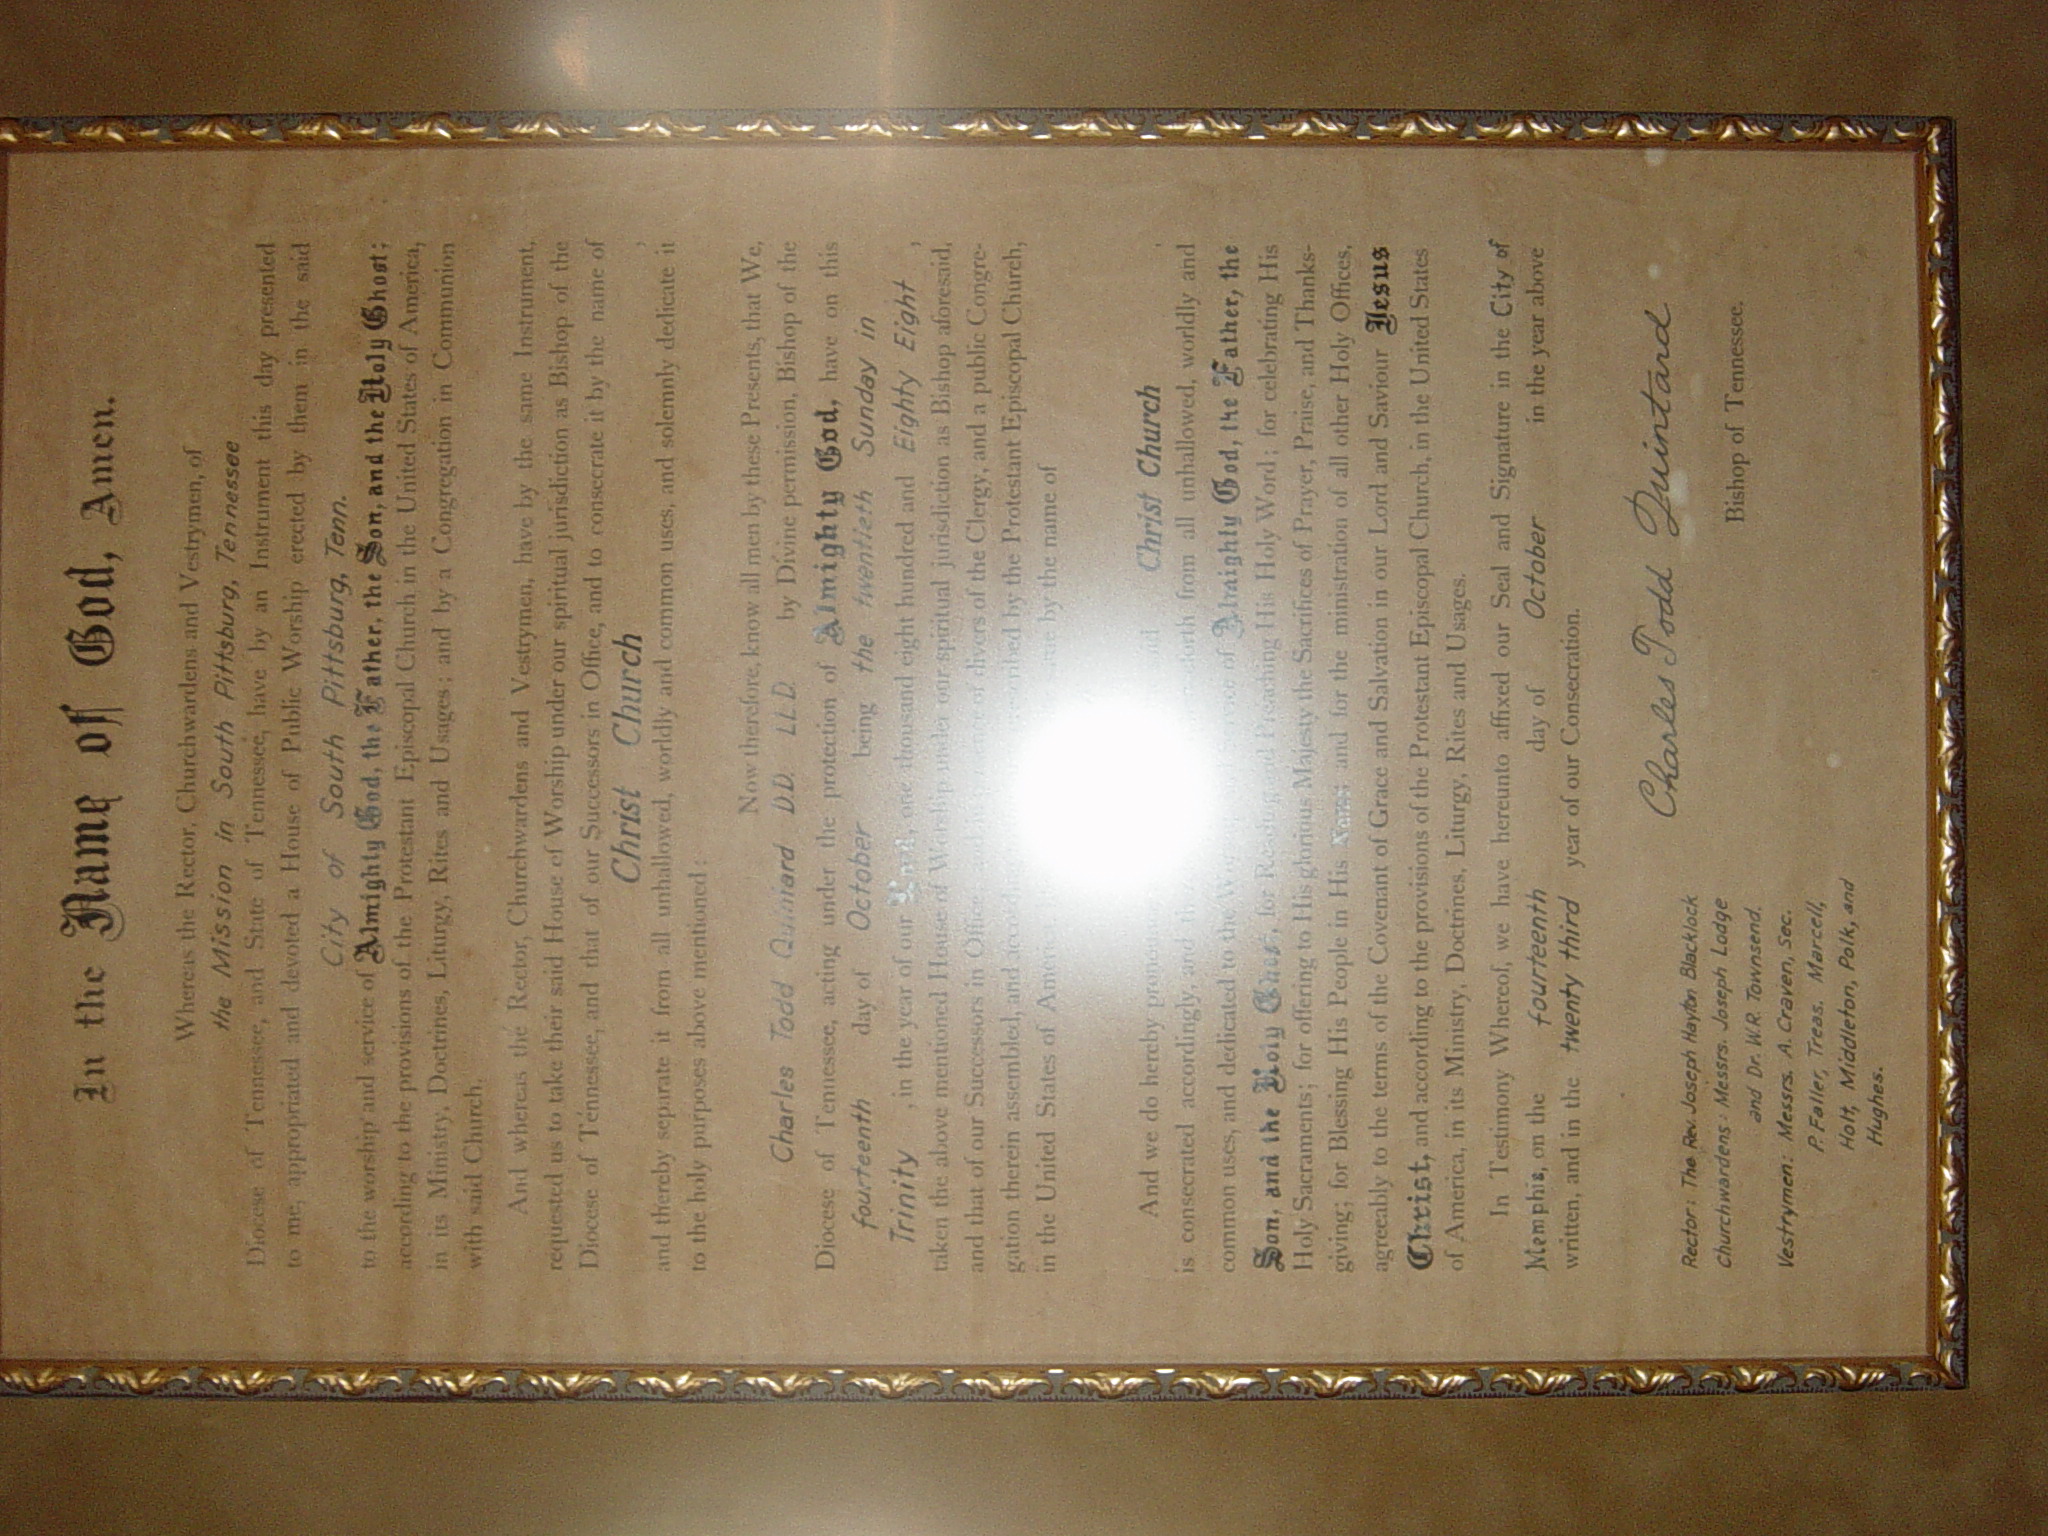 In the Name of God, Amen.
Whereas the Rector, Churchwardens and Vestrymen, of
the Mission in South Pittsburg, Tennessee
Diocese of Tennessee, and State of Tennessee, have by an Instrument this day presented
to me, appropriated and devoted a House of Public Worship erected by them in the said
City of South Pittsburg, Tenn.
to the worship and service of Almighty God, the Father, the Son, and the Holy Ghost;
according to the provisions of the Protestant Episcopal Church in the United States of America,
in its Ministry, Doctrines, Liturgy, Rites and Usages; and by a Congregation in Communion
with said Church.
And whereas the Rector, Churchwardens and Vestrymen, have by the same Instrument,
requested us to take their said House of Worship under our spiritual jurisdiction as Bishop of the
Diocese of Tennessee, and that of our Successors in Office, and to consecrate it by the name of
Christ Church ,
and thereby separate it from all unhallowed, worldly and common uses, and solemnly dedicate it
to the holy purposes above mentioned:
Now therefore, know all men by these Presents, that We,
Charles Todd Quintard D.D. LL.D. by Divine permission, Bishop of the
Diocese of Tennessee, acting under the protection of Almighty God, have on this
fourteenth day of October being the twentieth Sunday in
Trinity , in the year of our Lord, one thousand eight hundred and Eighty Eight ,
taken the above mentioned House of Worship under our spiritual jurisdiction as Bishop aforesaid,
and that of our Successors in Office, of divers of the Clergy, and a public Congre-
gation therein assembled, and by the Protestant Episcopal Church,
in the United States of by the name of
And we do hereby Christ Church ,
is consecrated accordingly, and from all unhallowed, worldly and
common uses, and dedicated to the of Almighty God, the Father, the
Son, and the Holy Ghost, for Reading and Preaching His Holy Word; for celebrating His
Holy Sacraments; for offering to His glorious Majesty the Sacrifices of Prayer, Praise, and Thanks-
giving; for Blessing His People in His Name; and for the ministration of all other Holy Offices,
agreeably to the terms of the Covenant of Grace and Salvation in our Lord and Saviour Jesus
Christ, and according to the provisions of the Protestant Episcopal Church, in the United States
of America, in its Ministry, Doctrines, Liturgy, Rites and Usages.
In Testimony Whereof, we have hereunto affixed our Seal and Signature in the City of
Memphis, on the fourteenth day of October in the year above
written, and in the twenty third year of our Consecration.
Charles Todd Quintard
Bishop of Tennessee.
Rector: The Rev. Joseph Hayton Blacklock
Churchwardens: Messrs. Joseph Lodge
and Dr. W.R. Townsend.
Vestrymen: Messrs. A. Craven, Sec.
P. Faller, Treas. Marcell,
Holt, Middleton, Polk, and
Hughes.